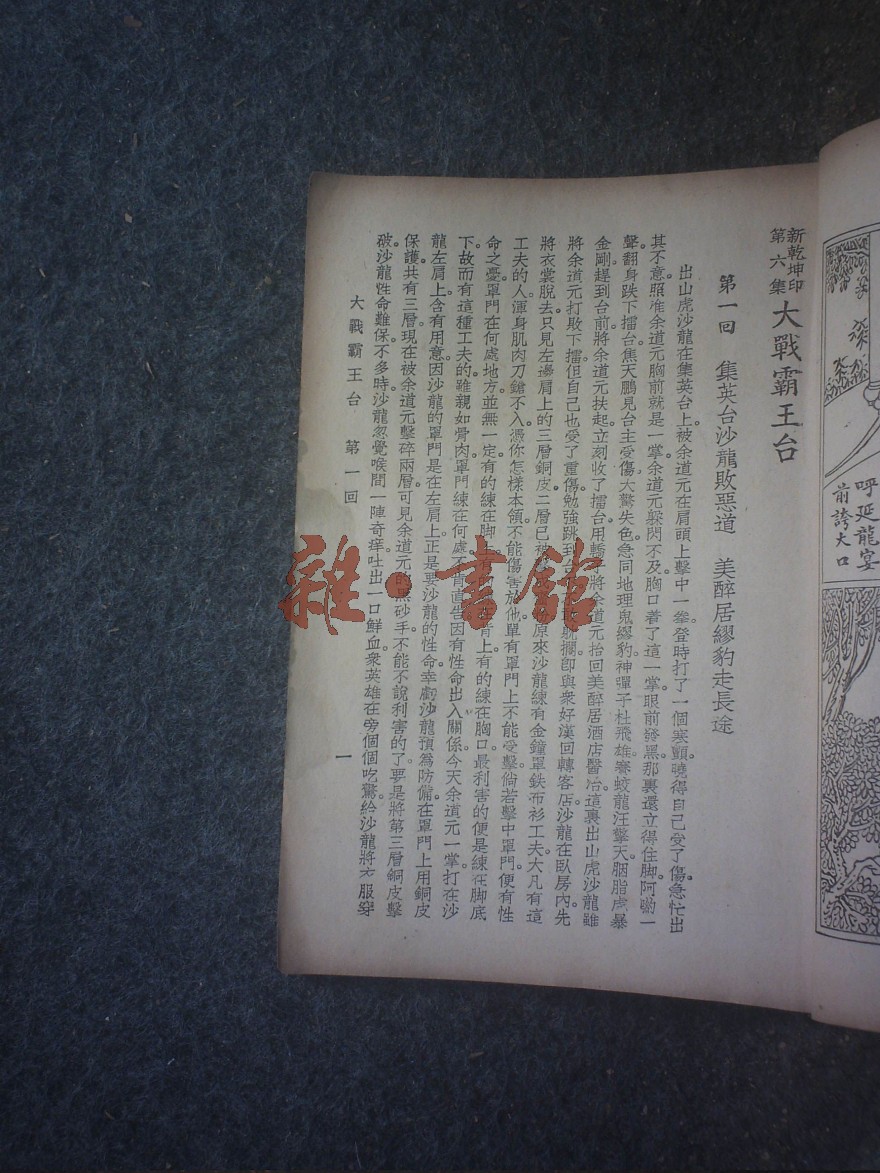 呼延龍宴
前誇大口
新乾坤印
第六集
大戰霸王台
第一回　集英台沙龍敗惡道　美醉居繆豹走長途
出山虎沙龍在集英台上。被余道元在肩頭上擊中一拳。登時打了一個寒顫。曉得自己受了傷。急忙出
其不意。照准余道元胸前就是一掌。余道元躲閃不及。胸口着了這一掌。眼前發黑。那裏還立得住脚。阿喲一
聲。翻身跌下擂台。焦天鵬見台主受傷。大驚失色。急同地理鬼繆豹神彈子杜飛雄賽蛟龍汪擎天胭脂虎暴
金剛。趕到台前。將余道元扶起。立刻收了擂台。用轎將余道元抬回美醉居酒店醫治。這裏出山虎沙龍。雖
將余道元打敗下擂。但自己也受了重傷。勉強跳到台 卽與衆好漢回轉客店。沙龍在臥房內。先
將衣裳脫去。只見左邊肩上的三層銅皮。二層已 原來沙龍練有金鐘罩鉄布衫工夫。大凡有這
工夫的人。渾身肌肉刀鎗不入。憑你怎樣本領。不能傷害於他。單有罩門上不能受擊。倘若擊中罩門。便有性
命之憂。罩門在何處地方。並無一定。有的練在脚上。有 背上。有的練在胸口。最利害的便是練在脚底
下。故而有這種工夫的。雖親如骨肉。罩門練在何處。不肯直告。因有性命出入關係。今天余道元一掌。打在沙
龍左肩上。含有用意。因沙龍的罩門是在左肩上。正是要沙龍的性命。幸虧沙龍預爲防備。在罩門上用銅皮
保護。共有三層。現在被余道元擊碎兩層。可見余道元的黑砂手。不能不說利害的了。要是將第三層銅皮擊
破。沙龍性命難保。不多時。沙龍忽覺喉間一陣奇痒。吐出一口鮮血。衆英雄在旁。個個吃驚。給沙龍將衣服穿
大戰霸王台　第一回
一
雜·書館